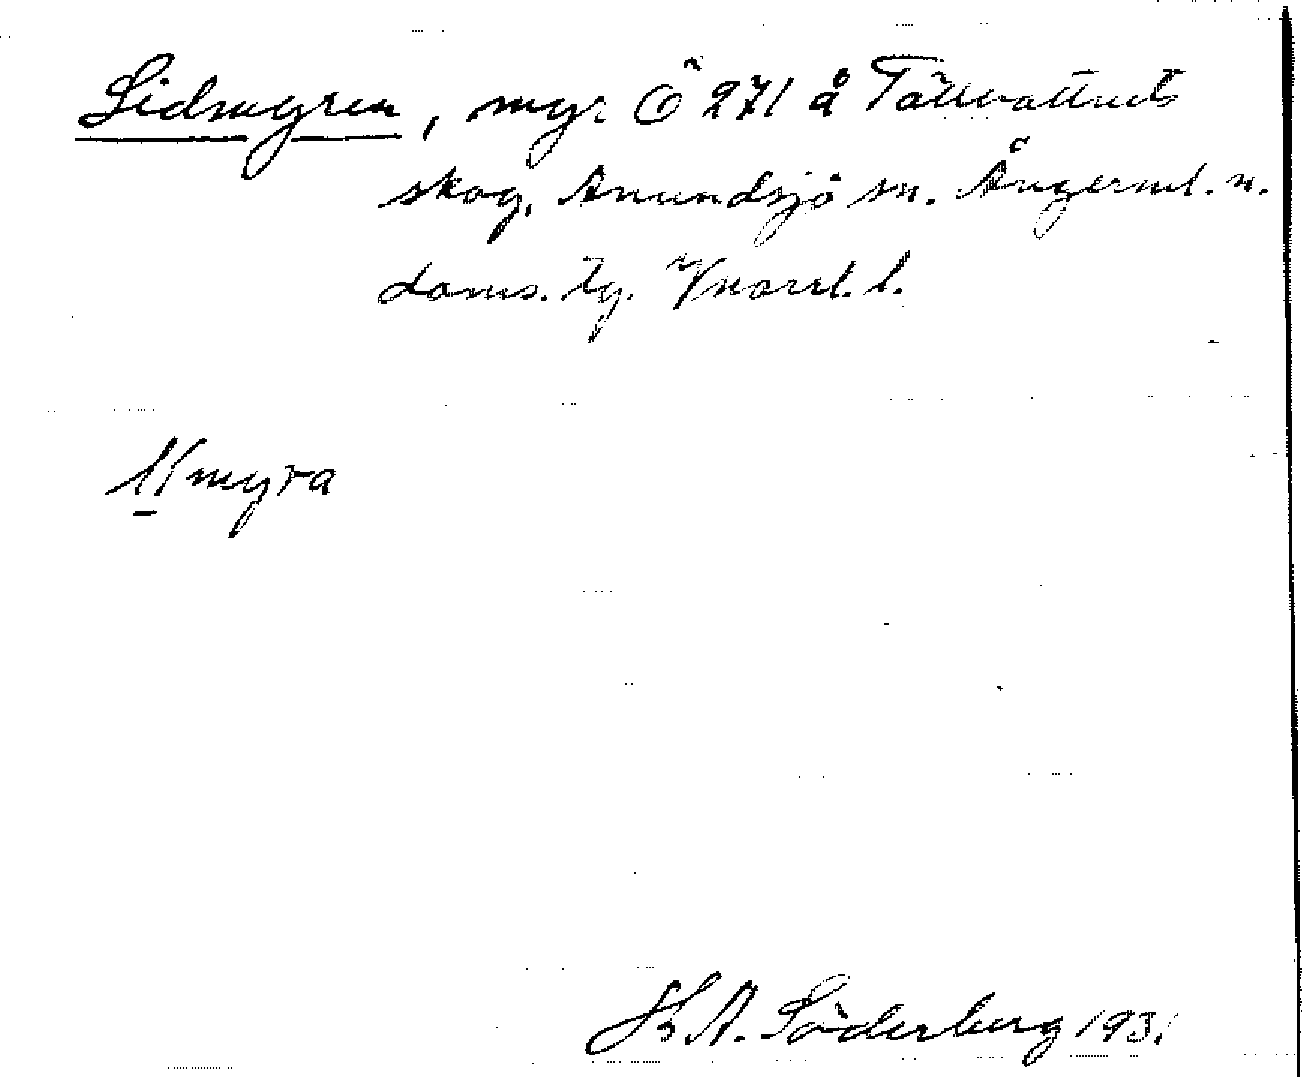 Lidmyren, myr Ö 271 å Tällvattnets
skog, Anundsjö sn. Ångerml. n.
doms. tg. Vnorrl. l.
myra
A. Söderberg 1931